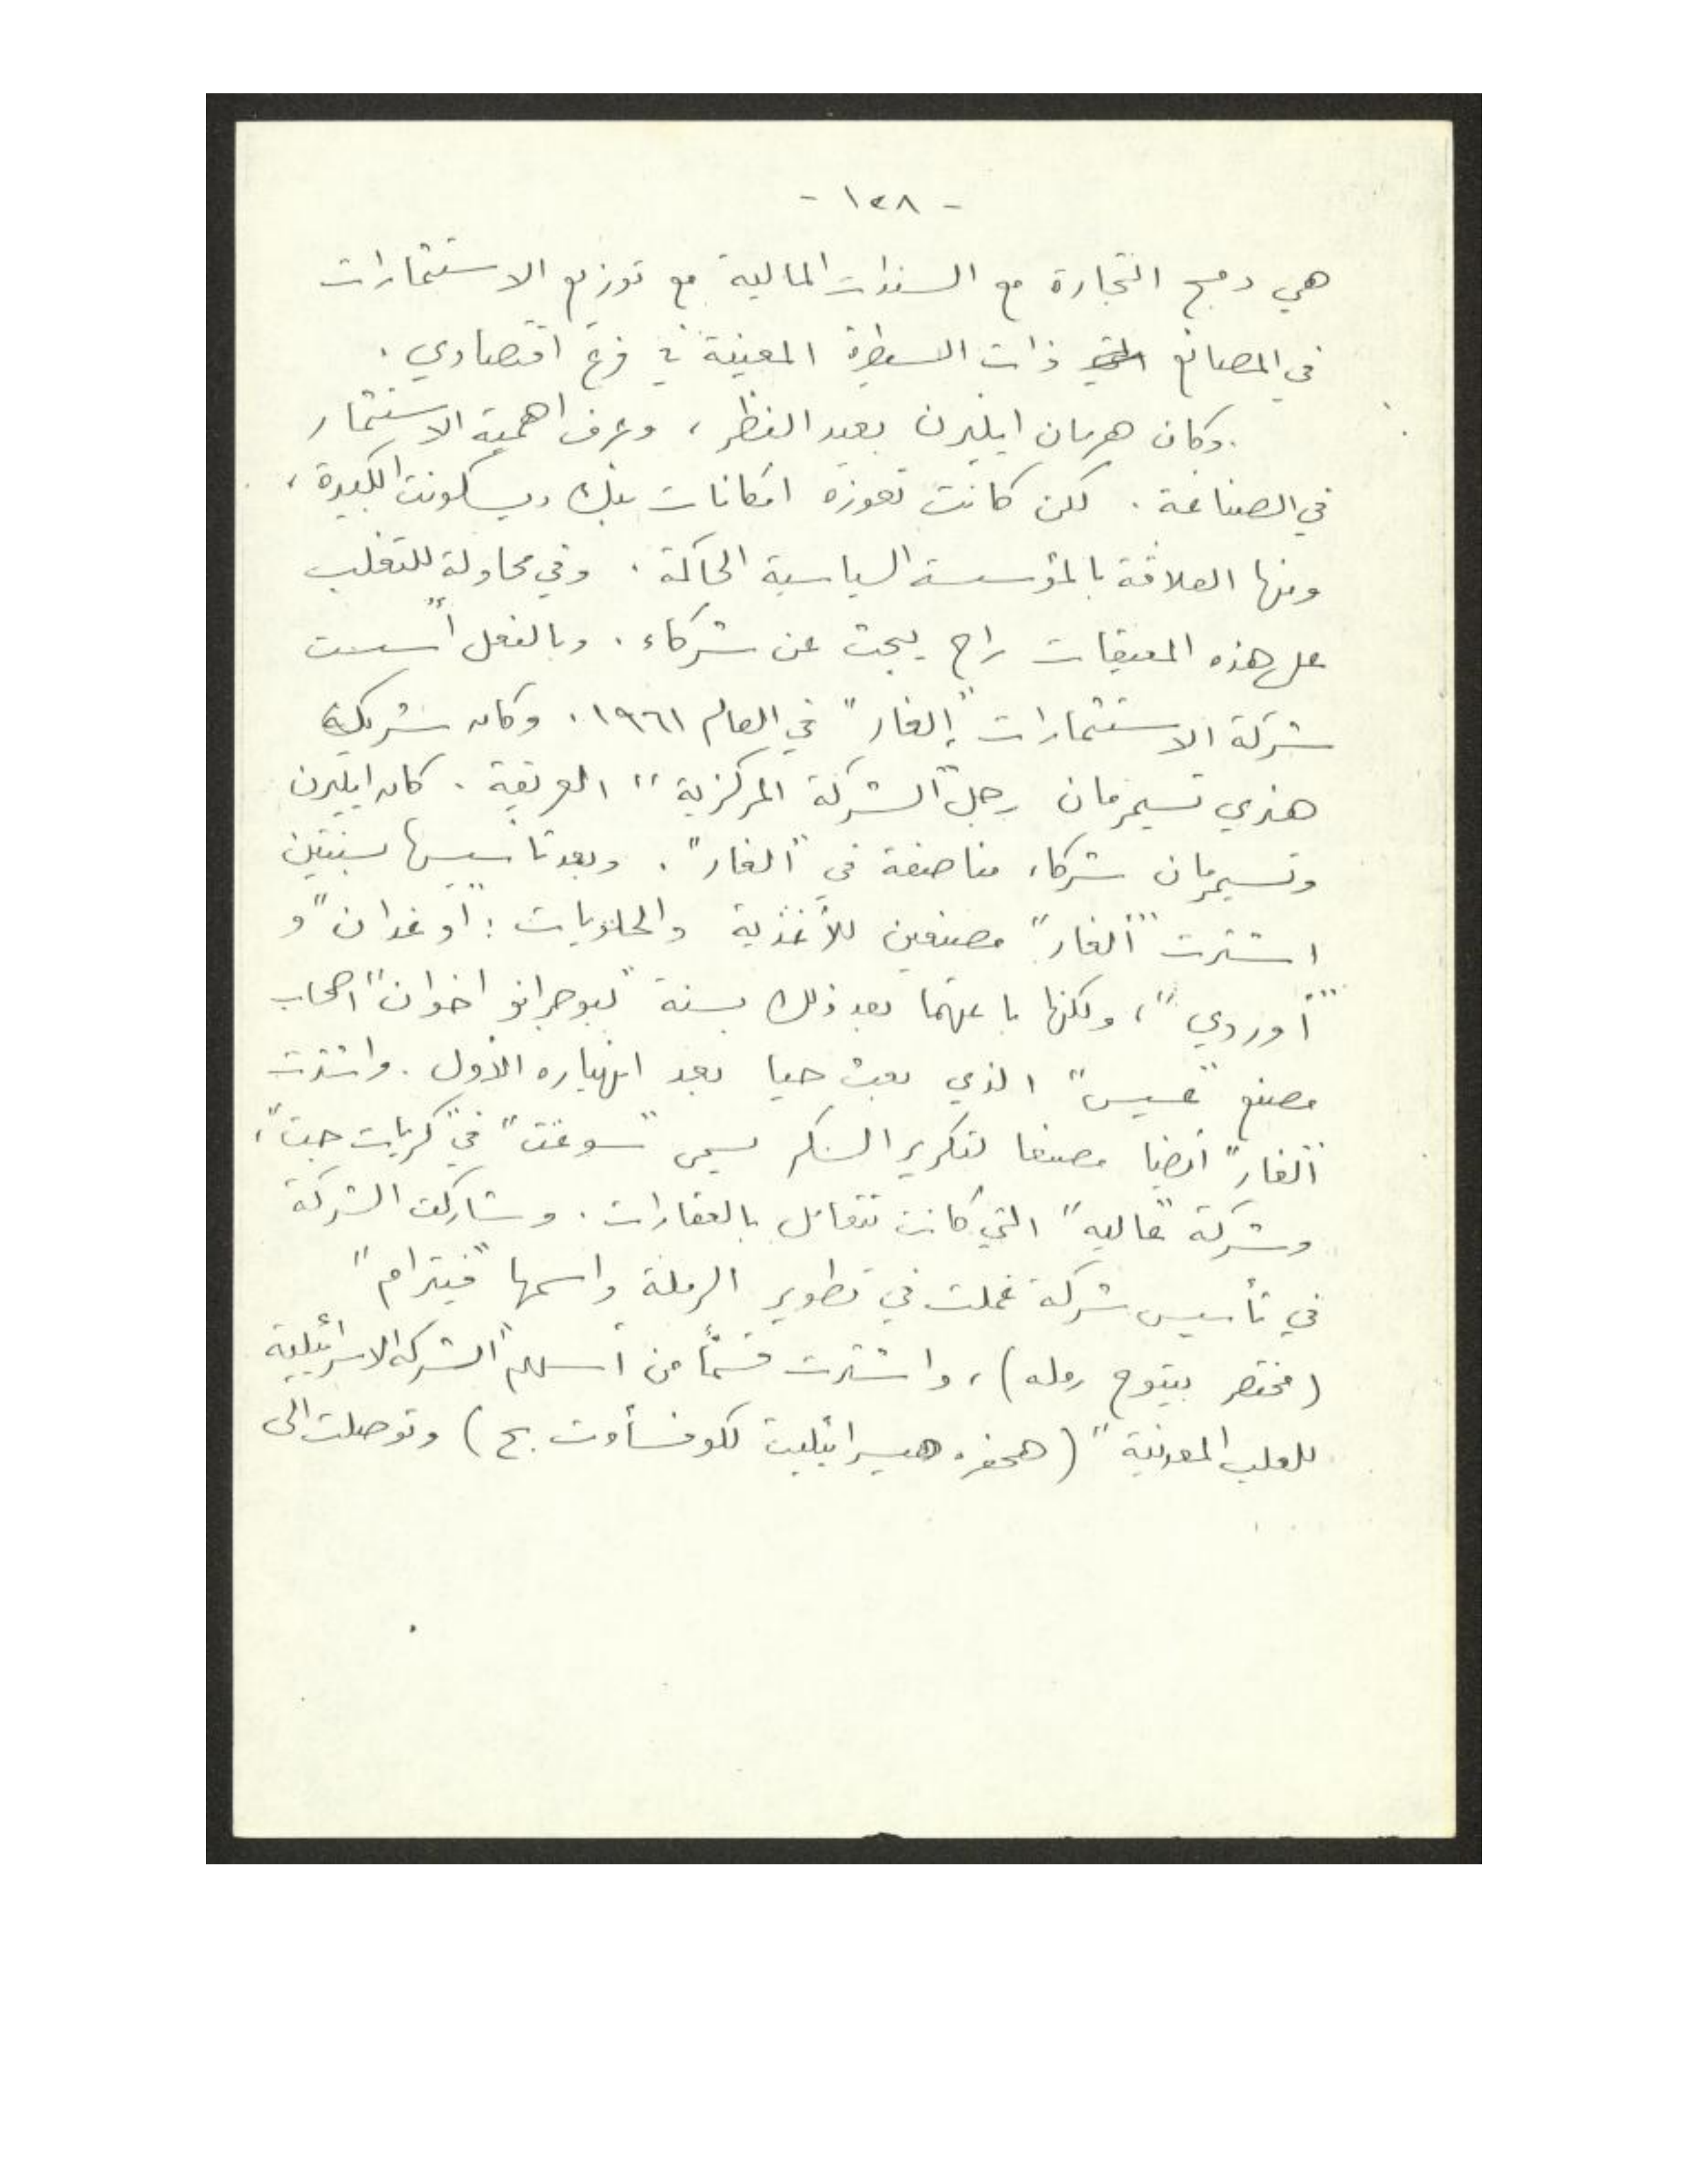 - ١٢٨ -
هي دمج التجارة مع السندات المالية مع توزيع الاستثمارات
في المصانع ذات السيطرة المعينة في فرع اقتصادي .
وكان هرمان ايلرن بعيد النظر ، وعرف اهمية الاستثمار
في الصناعة . لكن كانت تعوزه امكانات بنك ديسكونت الكبيرة ،
ومنها العلاقة بالمؤسسة السياسية الحاكمة . وفي محاولة للتغلب
على هذه المعيقات راح يبحث عن شركاء . وبالفعل أسست
شركة الاستثمارات "إلغار" في العام ١٩٦١ . وكان شريكه
هنري تسيمرمان رجل "الشركة المركزية" العريقة . كان ايلرن
وتسيمرمان شركاء مناصفة في "ألغار" . وبعد تأسيسها بسنتين
اشترت "ألغار" مصنعين للأغذية والحلويات : "أوغدان" و
"أوردي" ، ولكنها باعتهما بعد ذلك بسنة لبوجرانو اخوان" اصحاب
مصنع "عسيس" الذي بعث حيا بعد انهياره الأول . واشترت
"ألغار" أيضا مصنعا لتكرير السكر يسمى "سوغت" في "كريات جت" ،
وشركة "عاليه" التي كانت تتعامل بالعقارات . وشاركت الشركة
في تأسيس شركة عملت في تطوير الرملة واسمها "فيترام"
(مختصر بيتوح رمله) ، واشترت قسمًا من أسهم "الشركة الاسرائيلية
للعلب المعدنية" (هحفره هيسرائيليت لكوفسأوت بح) وتوصلت الى